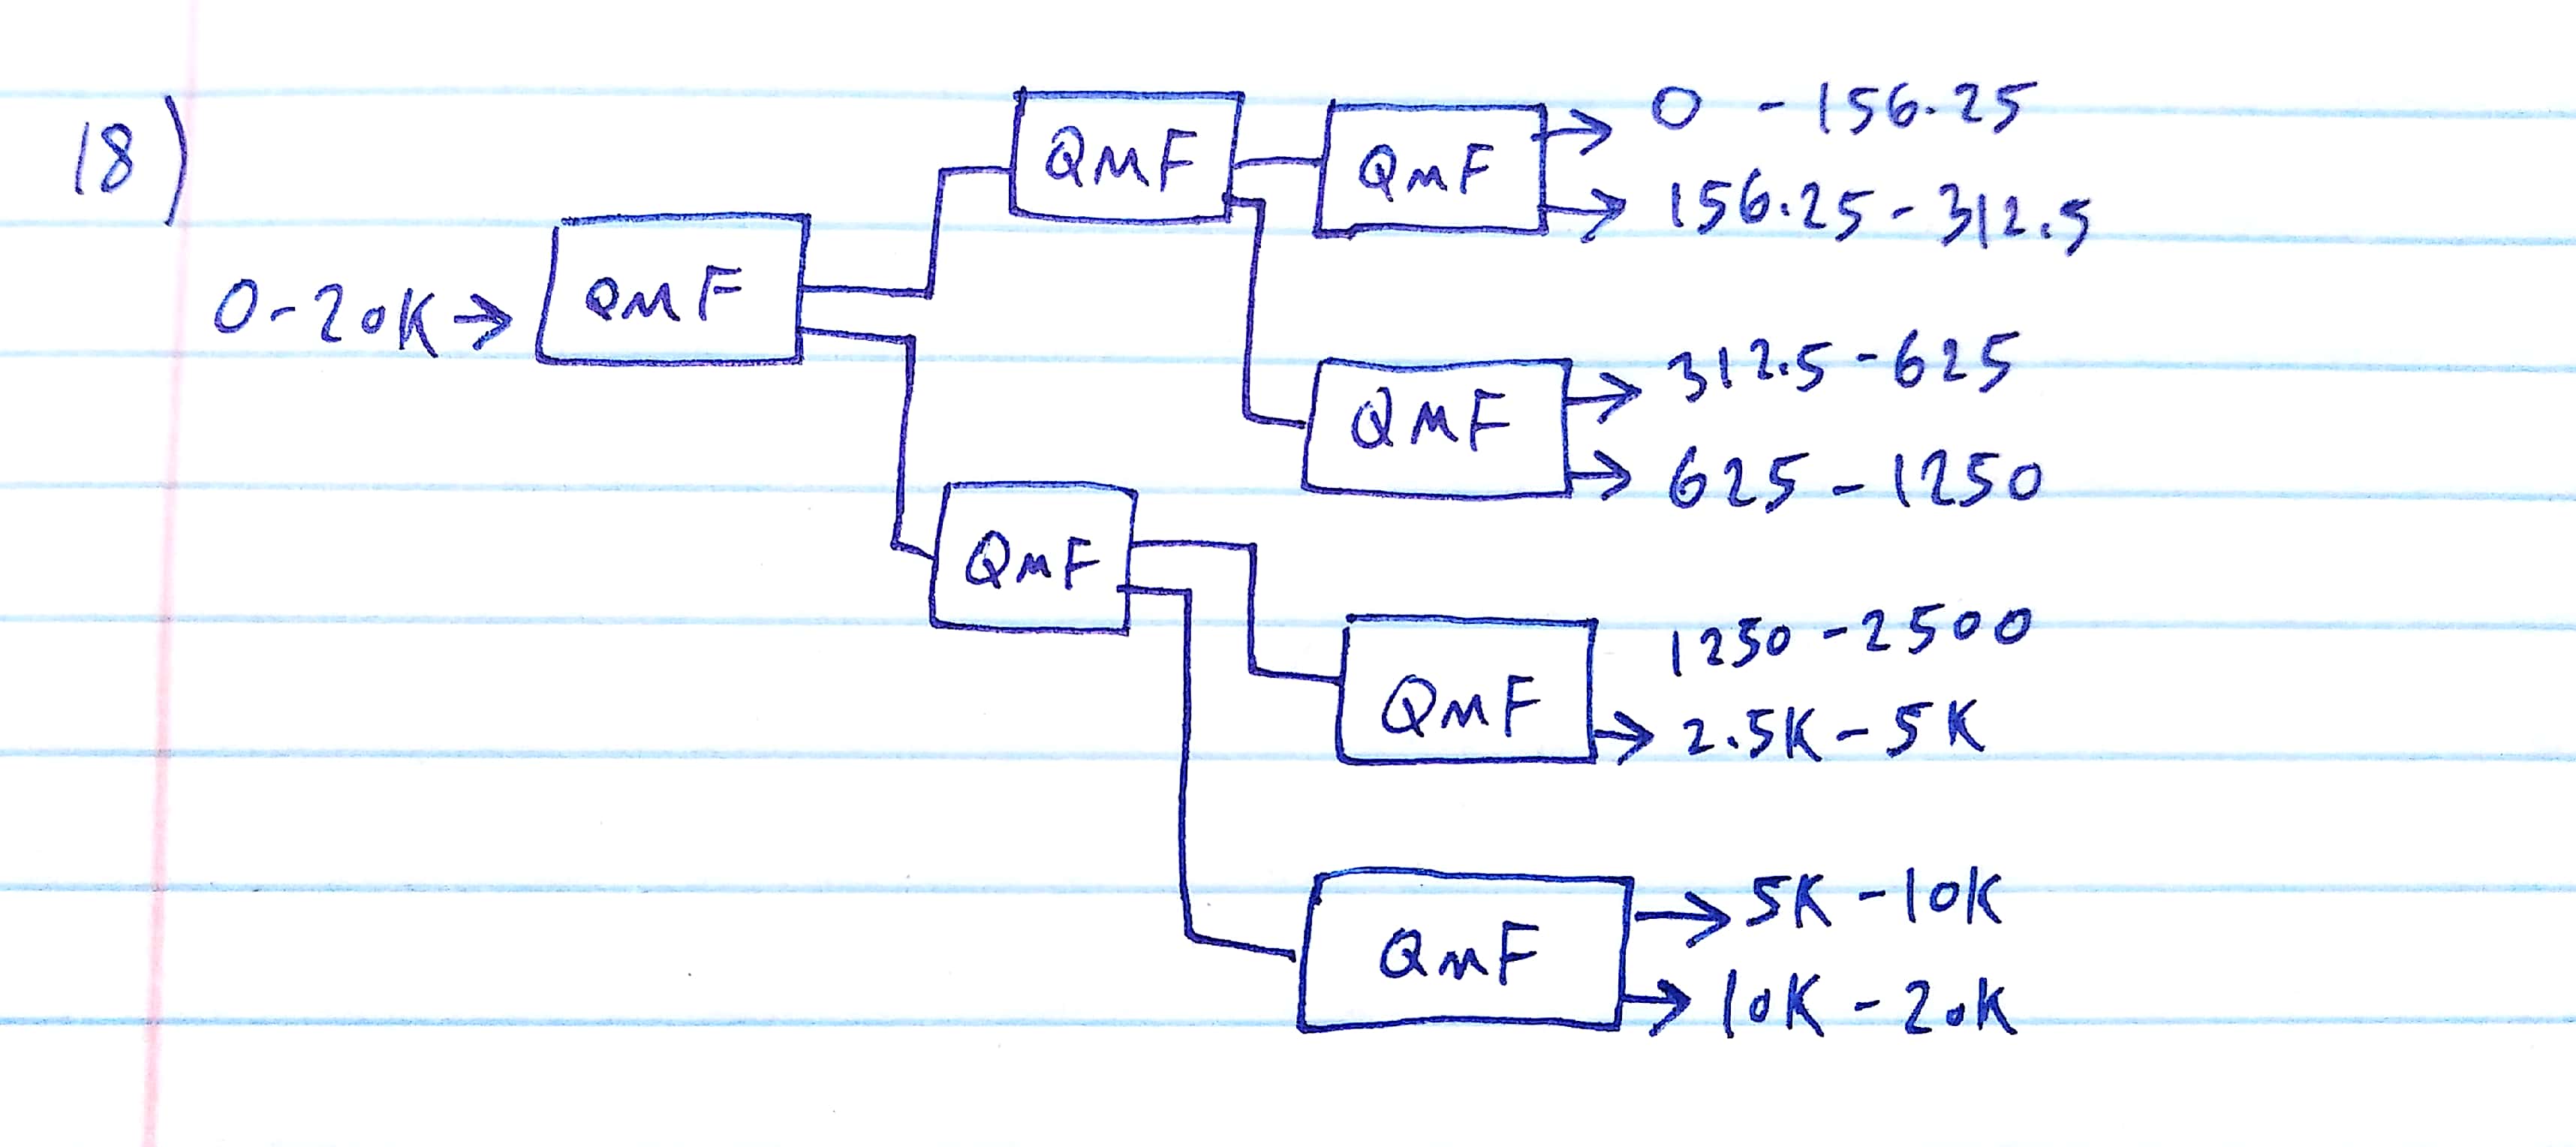 18)
0-20K→
QMF
QMF
QMF
→ 0 - 156.25
→ 156.25-312.5
QMF
→ 312.5-625
→ 625-1250
QMF
QMF
1250-2500
→ 2.5K-5K
QMF
→ 5K-10K
→ 10K-20K